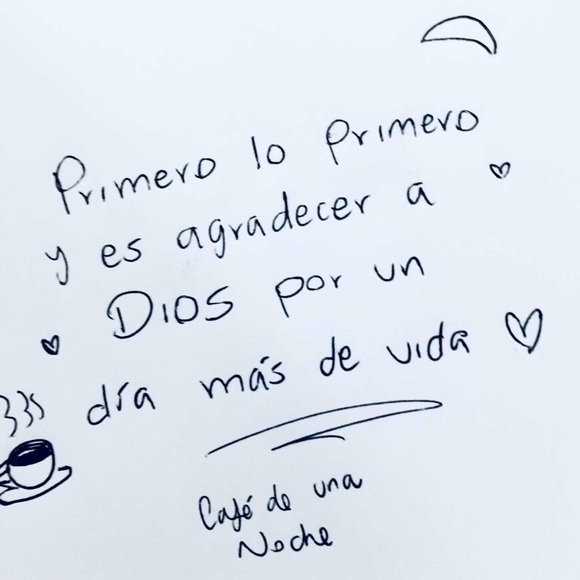 Primero lo primero
y es agradecer a
DIOS por un
día más de vida
Café de una
Noche